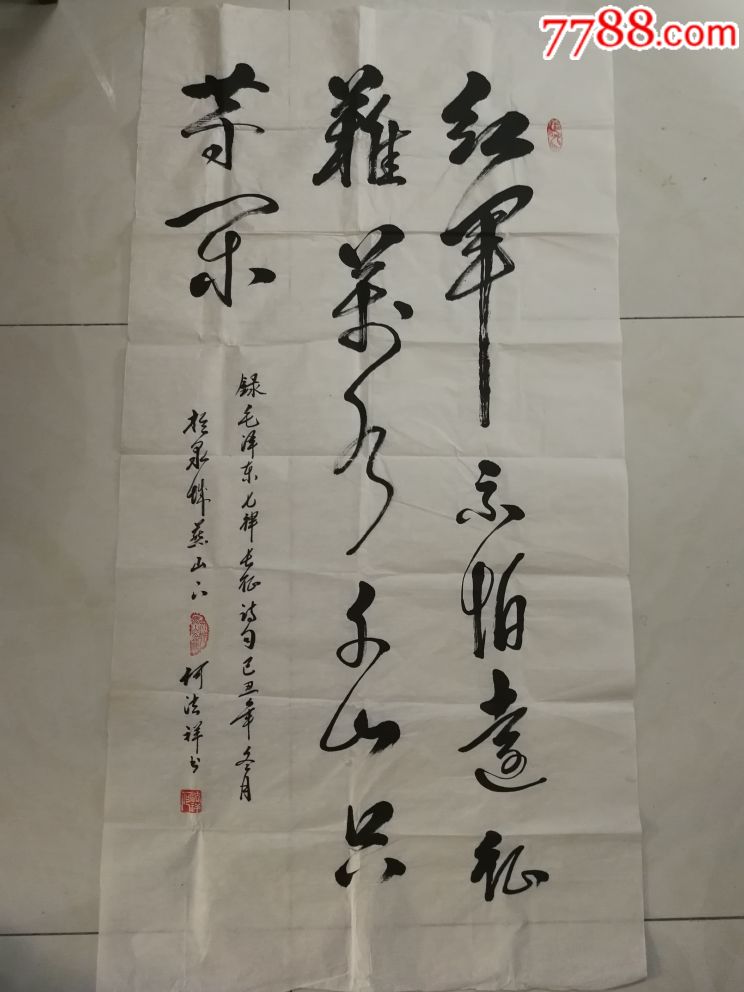 7788.com
红军不怕遠征
難萬水千山只
等闲
録毛泽东七律长征诗句己丑年冬月
於泉城燕山下
何法祥书